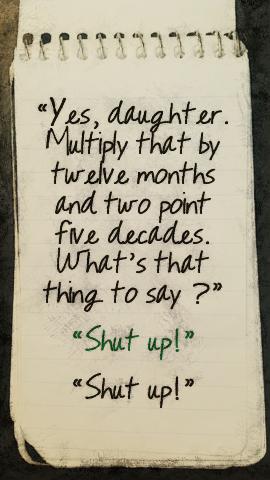 “Yes, daughter.
Multiply that by
twelve months
and two point
five decades.
What's that
thing to say ?”
“Shut up!”
“Shut up!”